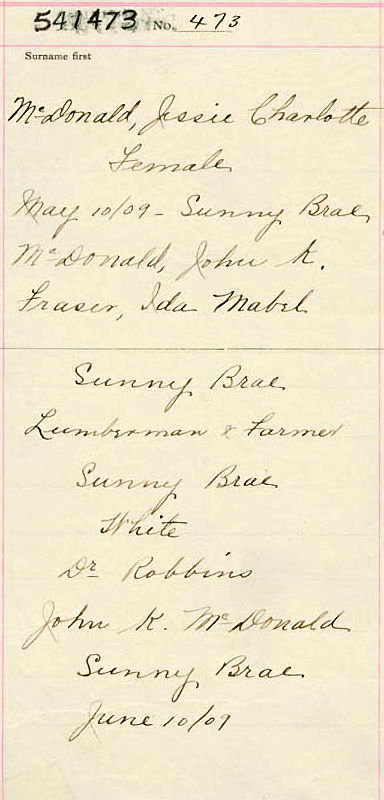 541473 No. 473
Surname first
McDonald, Jessie Charlotte
Female
May 10/09 - Sunny Brae
McDonald, John K.
Fraser, Ida Mabel
Sunny Brae
Lumberman & Farmer
Sunny Brae
White
Dr Robbins
John K. McDonald
Sunny Brae
June 10/09